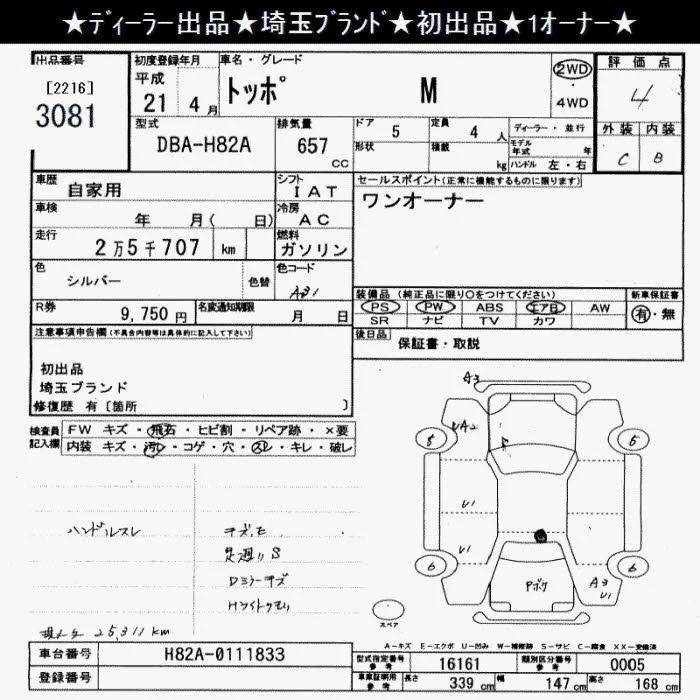 ★ディーラー出品★埼玉ブランド★初出品★1オーナー★
出品番号
[2216]
3081
初度登録年月
平成
21 4月
車名・グレード
トッポ M
2WD
・
4WD
評価点
4
外装 内装
C B
型式
DBA-H82A
排気量
657
CC
ドア 5
形状
定員 4 人
積載 kg
ディーラー・並行
モデル年式 年
ハンドル 左・右
車歴 自家用
シフト
I A T
車検 年 月( 日)
冷房
A C
走行 2万5千707 km
燃料
ガソリン
色 シルバー 色替
色コード
A31
R券 9,750円
名変通知期限 月 日
セールスポイント(正常に機能するものに限ります)
ワンオーナー
装備品(純正品に限り○をつけてください)
PS PW ABS エアB AW
SR ナビ TV カワ
新車保証書
有・無
後日品
保証書・取説
注意事項申告欄(不具合内容等は具体的に記入して下さい)
初出品
埼玉ブランド
修復歴 有〔箇所 〕
検査員記入欄
FW キズ・飛石・ヒビ割・リペア跡・×要
内装 キズ・汚レ・コゲ・穴・スレ・キレ・破レ
ハンドルスレ
キズ,E
足廻りS
Dミラーキズ
Hライトクモリ
25,311km
A3
UA2
U1
U1
6
6
6
Pボケ
A3
U1
スペア
A-キズ E-エクボ U-凹み W-補修跡 S-サビ C-腐食 XX-交換済
車台番号 H82A-0111833
登録番号
型式指定番号
参考
16161
類別区分番号
参考
0005
車庫証明用
参考
長さ 339 cm
幅 147 cm
高さ 168 cm